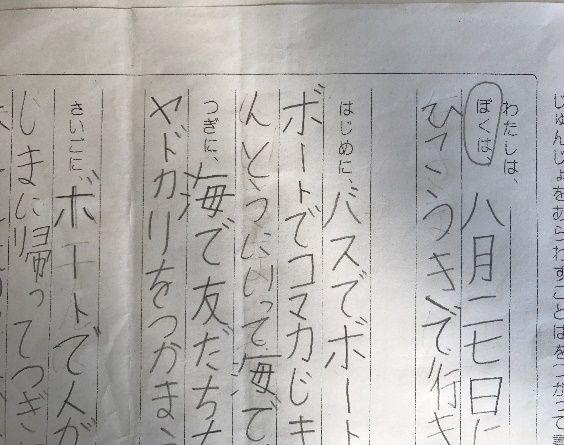 じゅんじょをあらわすことばをつかって書
わたしは、
ぼくは、八月二七日に
ひこうきで行き
はじめに、バスでボート
ボートでコマカじキ
んとうにいって海で
つぎに、海で友だちた
ヤドカリをつかまう
さいごに、ボートで人が
しまに帰ってつぎ